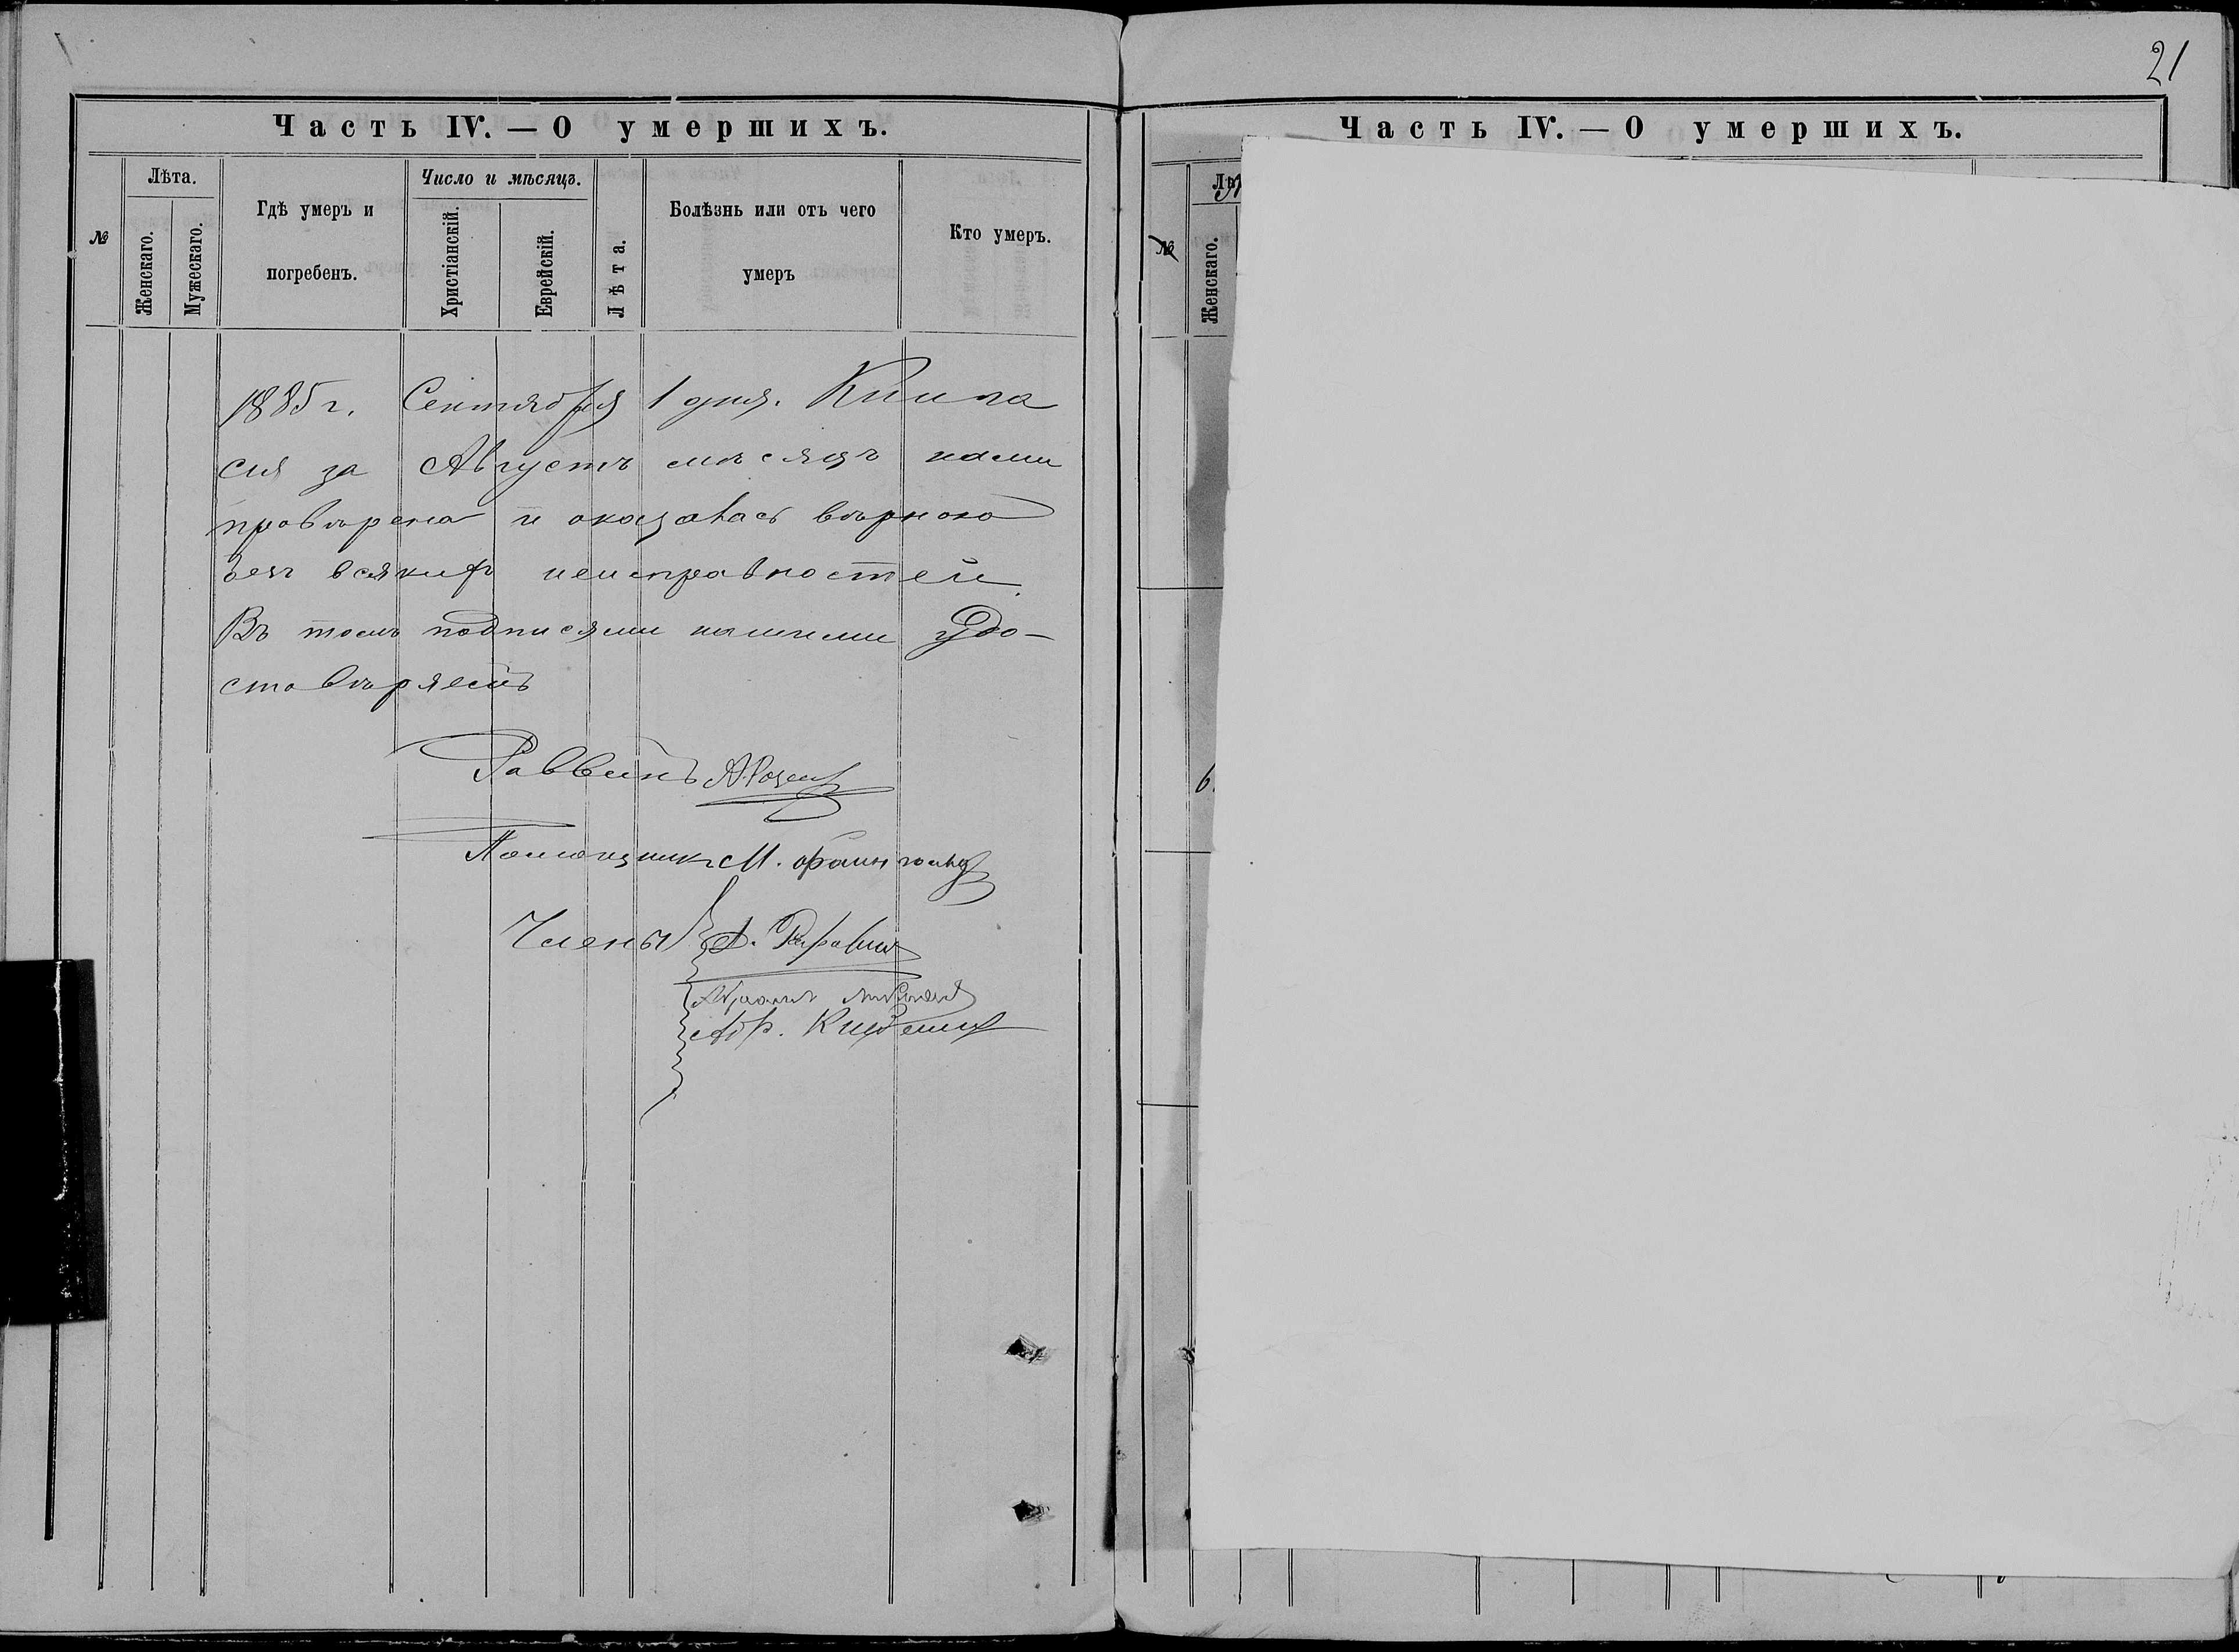 Часть IV. — О умершихъ.
№
Лѣта.
Женскаго.
Мужескаго.
Гдѣ умеръ и
погребенъ.
Число и мѣсяцъ.
Христіанскій.
Еврейскій.
Лѣта.
Болѣзнь или отъ чего
умеръ
Кто умеръ.
1885 г. Сентября 1 дня. Книга
сія за Августъ мѣсяцъ нами
провѣрена и оказалась вѣрною
безъ всякихъ неисправностей.
Въ томъ подписями нашими удо-
стовѣряемъ
Раввинъ А.
Помощникъ М.
Члены
Абр.
21
Часть IV. — О умершихъ.
№
Лѣ
Женскаго.
6.